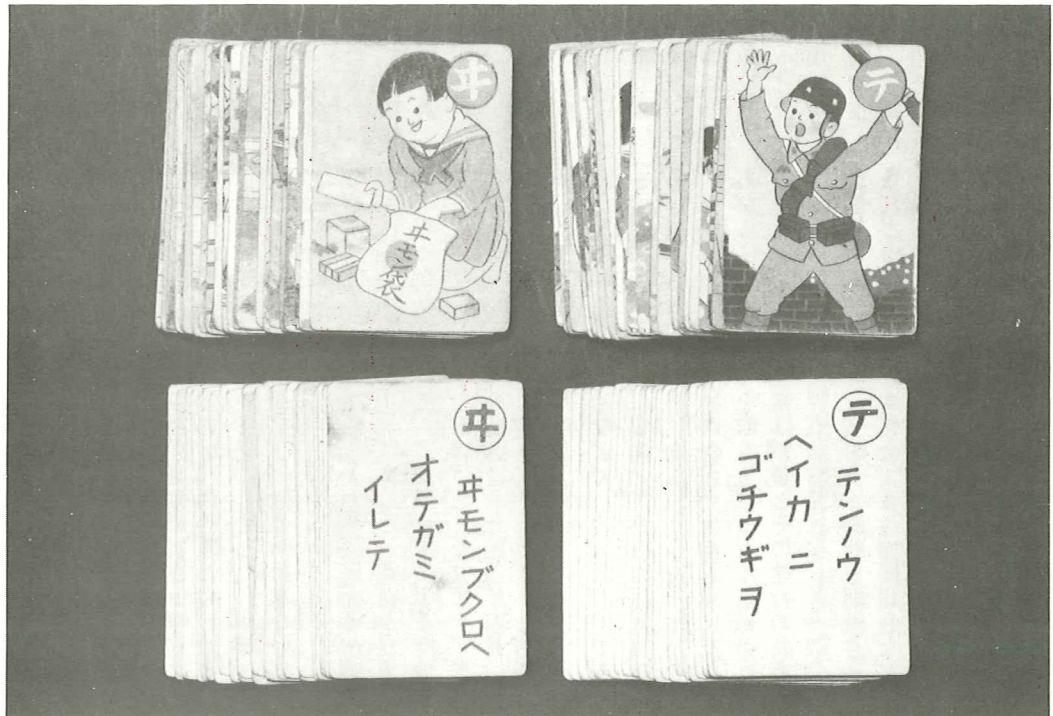 ヰ
ヰモン袋
テ
ヰ
ヰモンブクロヘ
オテガミ
イレテ
テ
テンノウ
ヘイカ ニ
ゴチウギヲ